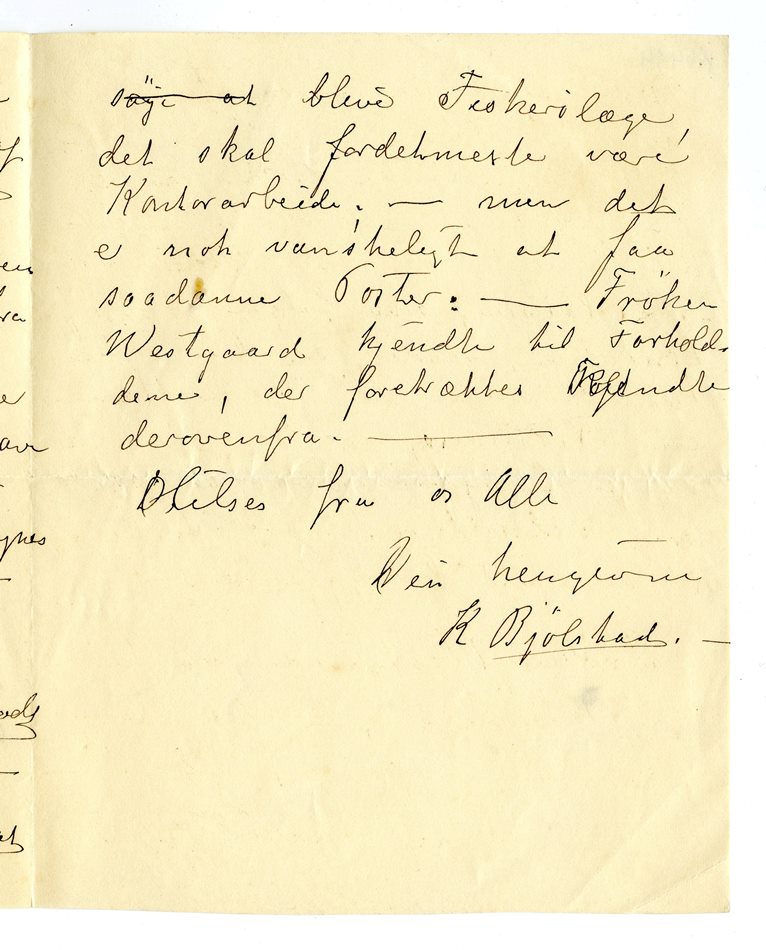 søge at blive Fiskerilæge,
det skal fordetmeste være
Kontorarbeide. — men det
er nok vanskeligt at faa
saadanne Poster. — Fröken
Westgaard kjendte til Forhold-
dene, der foretrækkes Kjendte
derovenfra. —
Hilses fra os Alle
Din hengivne
K Bjölstad. —